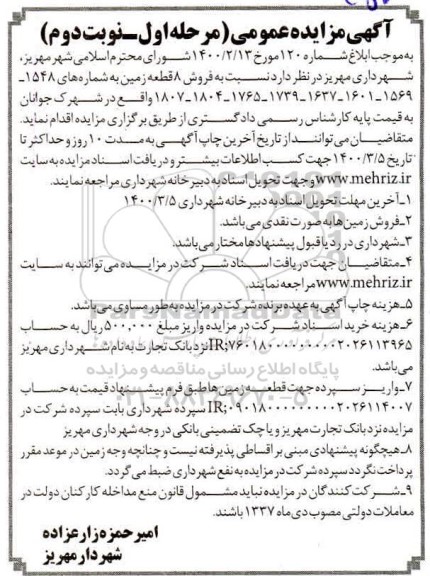 آگهی مزایده عمومی (مرحله اول_نوبت دوم)
به موجب ابلاغ شماره ۱۲۰ مورخ ۱۴۰۰/۲/۱۳ شورای محترم اسلامی شهر مهریز،
شهرداری مهریز در نظر دارد نسبت به فروش ۸ قطعه زمین به شماره های ۱۵۴۸-
۱۵۶۹-۱۶۰۱-۱۶۳۷-۱۷۳۹-۱۷۶۵-۱۸۰۴-۱۸۰۷ واقع در شهرک جوانان
به قیمت پایه کارشناس رسمی دادگستری از طریق برگزاری مزایده اقدام نماید.
متقاضیان می توانند از تاریخ آخرین چاپ آگهی به مدت ۱۰ روز و حداکثر تا
تاریخ ۱۴۰۰/۳/۵ جهت کسب اطلاعات بیشتر و دریافت اسناد مزایده به سایت
www.mehriz.ir وجهت تحویل اسناد به دبیرخانه شهرداری مراجعه نمایند.
۱_آخرین مهلت تحویل اسناد به دبیرخانه شهرداری ۱۴۰۰/۳/۵
۲_فروش زمین ها به صورت نقدی می باشد.
۳_شهرداری در رد یا قبول پیشنهادها مختار می باشد.
۴_متقاضیان جهت دریافت اسناد شرکت در مزایده می توانند به سایت
www.mehriz.ir مراجعه نمایند.
۵_هزینه چاپ آگهی به عهده برنده شرکت در مزایده به طور مساوی می باشد.
۶_هزینه خرید اسناد شرکت در مزایده واریز مبلغ ۵۰۰,۰۰۰ ریال به حساب
نزد بانک تجارت به نام شهرداری مهریز
می باشد.
۷_واریز سپرده جهت قطعه زمین ها طبق فرم پیشنهاد قیمت به حساب
سپرده شهرداری بابت سپرده شرکت در
مزایده نزد بانک تجارت مهریز و یا چک تضمینی بانکی در وجه شهرداری مهریز
۸_هیچگونه پیشنهادی مبنی بر اقساطی پذیرفته نیست و چنانچه وجه زمین در موعد مقرر
پرداخت نگردد سپرده شرکت در مزایده به نفع شهرداری ضبط می گردد.
۹_شرکت کنندگان در مزایده نباید مشمول قانون منع مداخله کارکنان دولت در
معاملات دولتی مصوب دی ماه ۱۳۳۷ باشند.
امیر حمزه زارعزاده
شهردار مهریز
پایگاه اطلاع رسانی مناقصه و مزایده
۰۲۱-۸۸۳۴۹۶۷۰-۵